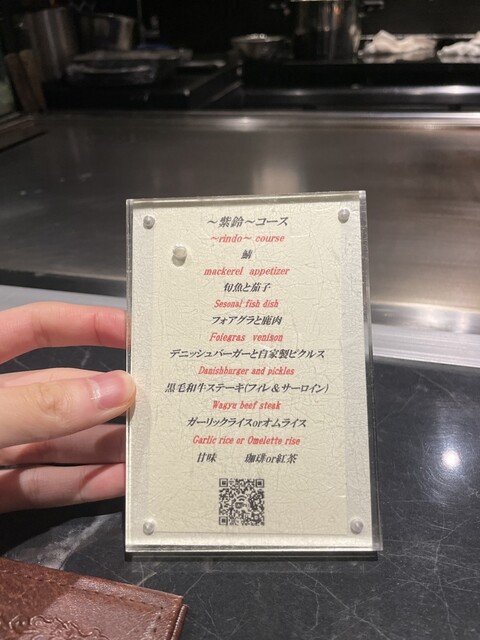 ～紫鈴～コース
～rindo～ course
鯖
mackerel appetizer
旬魚と茄子
Sesonal fish dish
フォアグラと鹿肉
Foiegras venison
デニッシュバーガーと自家製ピクルス
Danishburger and pickles
黒毛和牛ステーキ(フィレ＆サーロイン)
Wagyu beef steak
ガーリックライスorオムライス
Garlic rice or Omelette rise
甘味 珈琲or紅茶